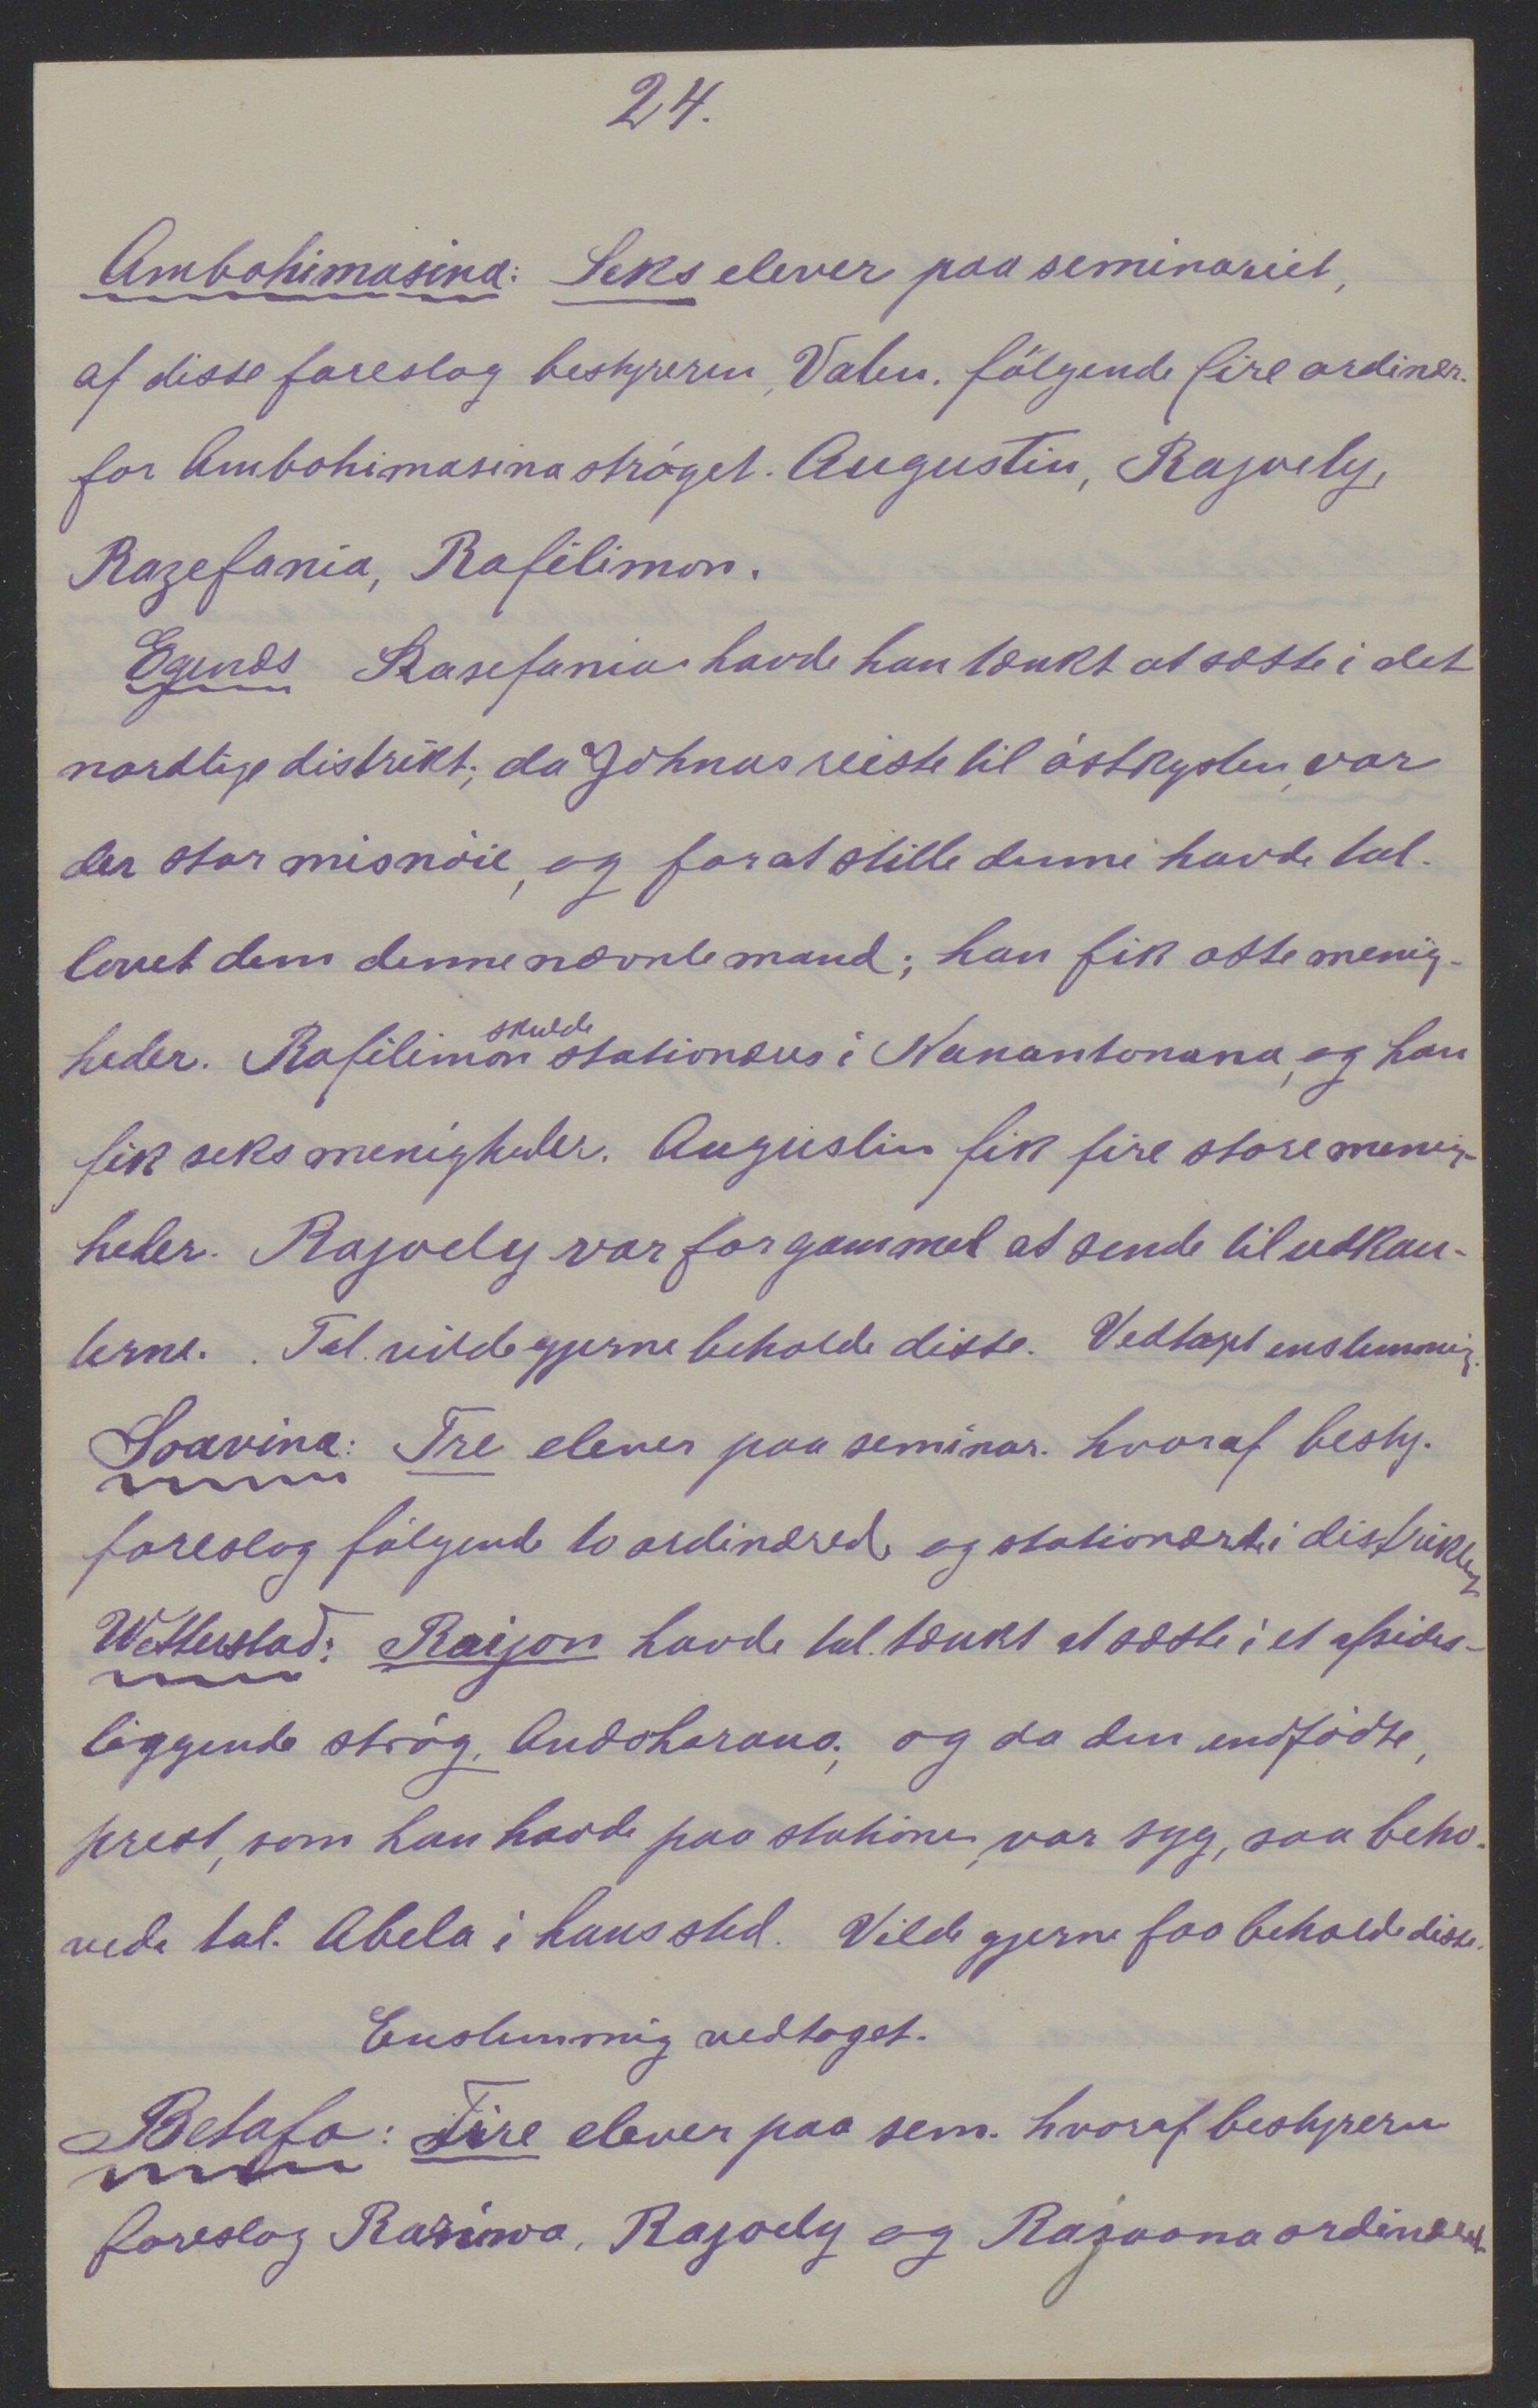 24.
Ambohimasina: Seks elever paa seminariet,
af disse foreslog bestyreren, Valen. følgende fire ordiner.
for Ambohimasina strøget. Augustin, Rajoely,
Razefania, Rafilimon.
Egenæs Rasefania havde han tænkt at sætte i det
nordlige distrikt; da Johnas reiste til østkysten, var
der stor misnøie, og for at stille denne havde tal.
lovet dem denne nævnte mand; han fik otte menig-
heder. Rafilimon skulde stationæres i Nanantonana, og han
fik seks menigheder. Augustin fik fire store menig-
heder. Rajoely var for gammel at sende til udkan-
terne. Tal. vilde gjerne beholde disse. Vedtaget enstemmig.
Soavina: Tre elever paa seminar. hvoraf besty.
foreslog følgende to ordinered og stationært i distriktet
Wetterstad: Raijon havde tal. tænkt at sætte i et afsides-
liggende strøg, og da den indfødte,
prest, som han havde paa stationen, var syg, saa beho-
vede tal. Abela i hans sted. Vilde gjerne faa beholde disse.
Enstemmig vedtaget.
Betafo: Fire elever paa sem. hvoraf bestyreren
foreslog Rajoely og Rajaona ordineret